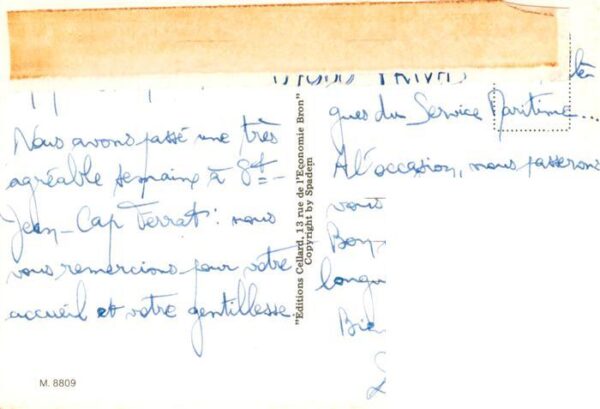 Nous avons passé une très
agréable semaine à St-
Jean-Cap Ferrat : nous
vous remercions pour votre
accueil et votre gentillesse.
M. 8809
"Editions Cellard, 13 rue de l'Economie Bron"
Copyright by Spadem
gues du Service Maritime...
A l'occasion, nous passerons
vous
Bon-
longu
Bie